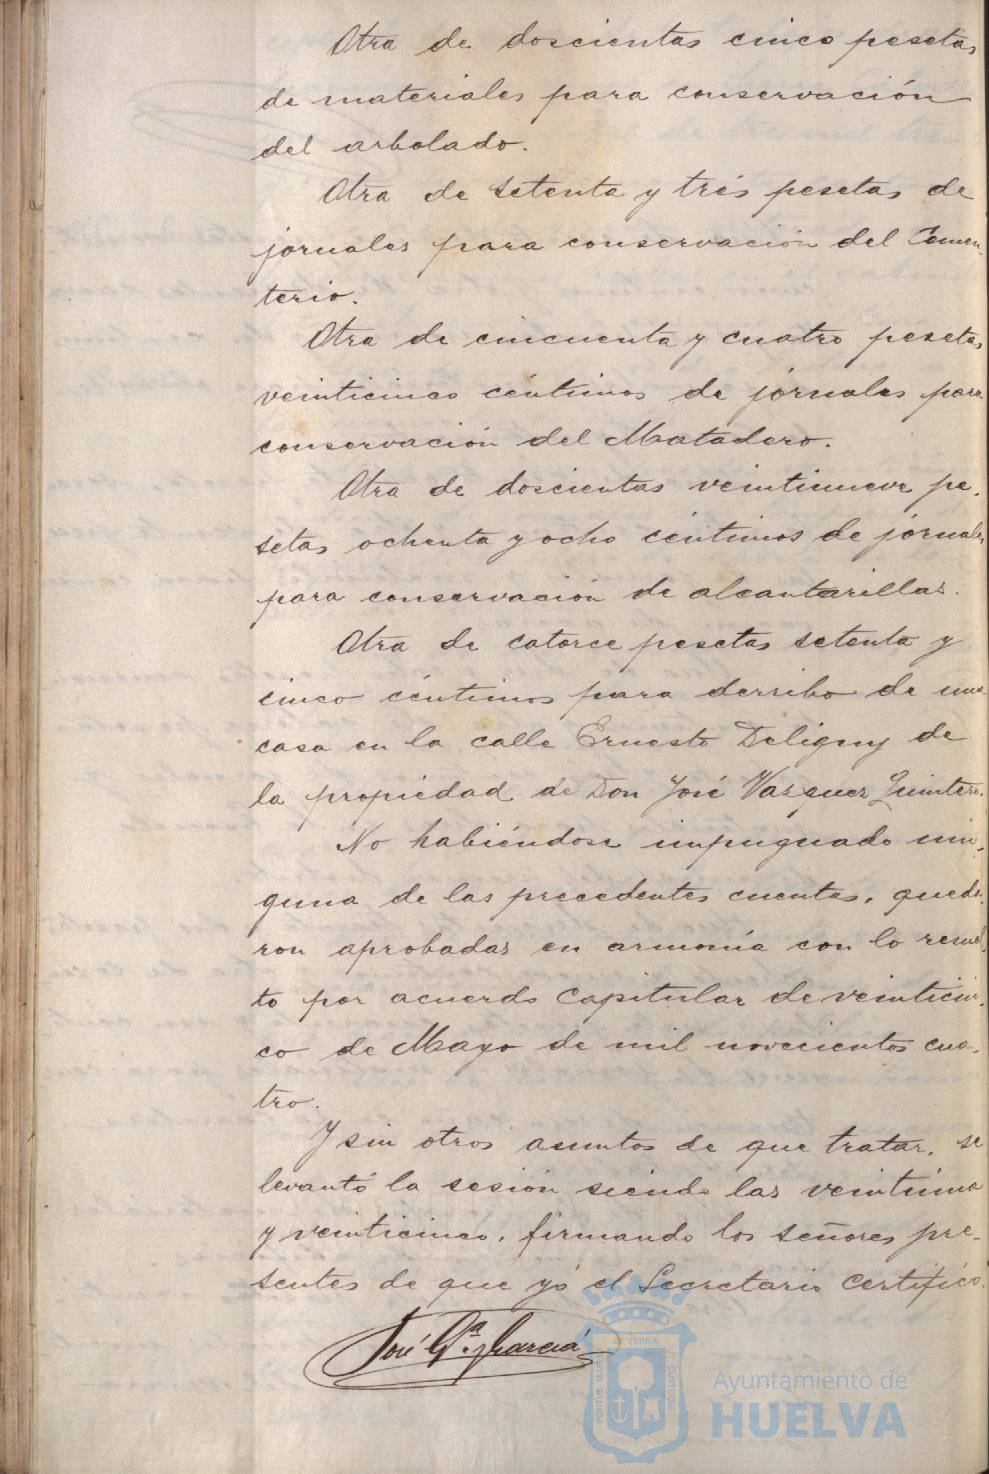 Otra de doscientas cinco pesetas
de materiales para conservación
del arbolado.
Otra de setenta y tres pesetas de
jornales para conservación del Cemen-
terio.
Otra de cincuenta y cuatro pesetas
veinticinco céntimos de jornales para
conservación del Matadero.
Otra de doscientas veintinueve pe-
setas ochenta y ocho céntimos de jornales
para conservación de alcantarillas.
Otra de catorce pesetas setenta y
cinco céntimos para derribo de una
casa en la calle Ernesto Deligny de
la propiedad de Don José Vazquez Quintero.
No habiéndose impugnado nin-
guna de las precedentes cuentas, queda-
ron aprobadas en armonía con lo resuel-
to por acuerdo Capitular de veinticin-
co de Mayo de mil novecientos cua-
tro.
Y sin otros asuntos de que tratar, se
levantó la sesión siendo las veintiuna
y veinticinco, firmando los señores pre-
sentes de que yó el Secretario certifico.
José García
PORTUS MARIS
ET TERRAE
CUSTODIA
Ayuntamiento de
HUELVA